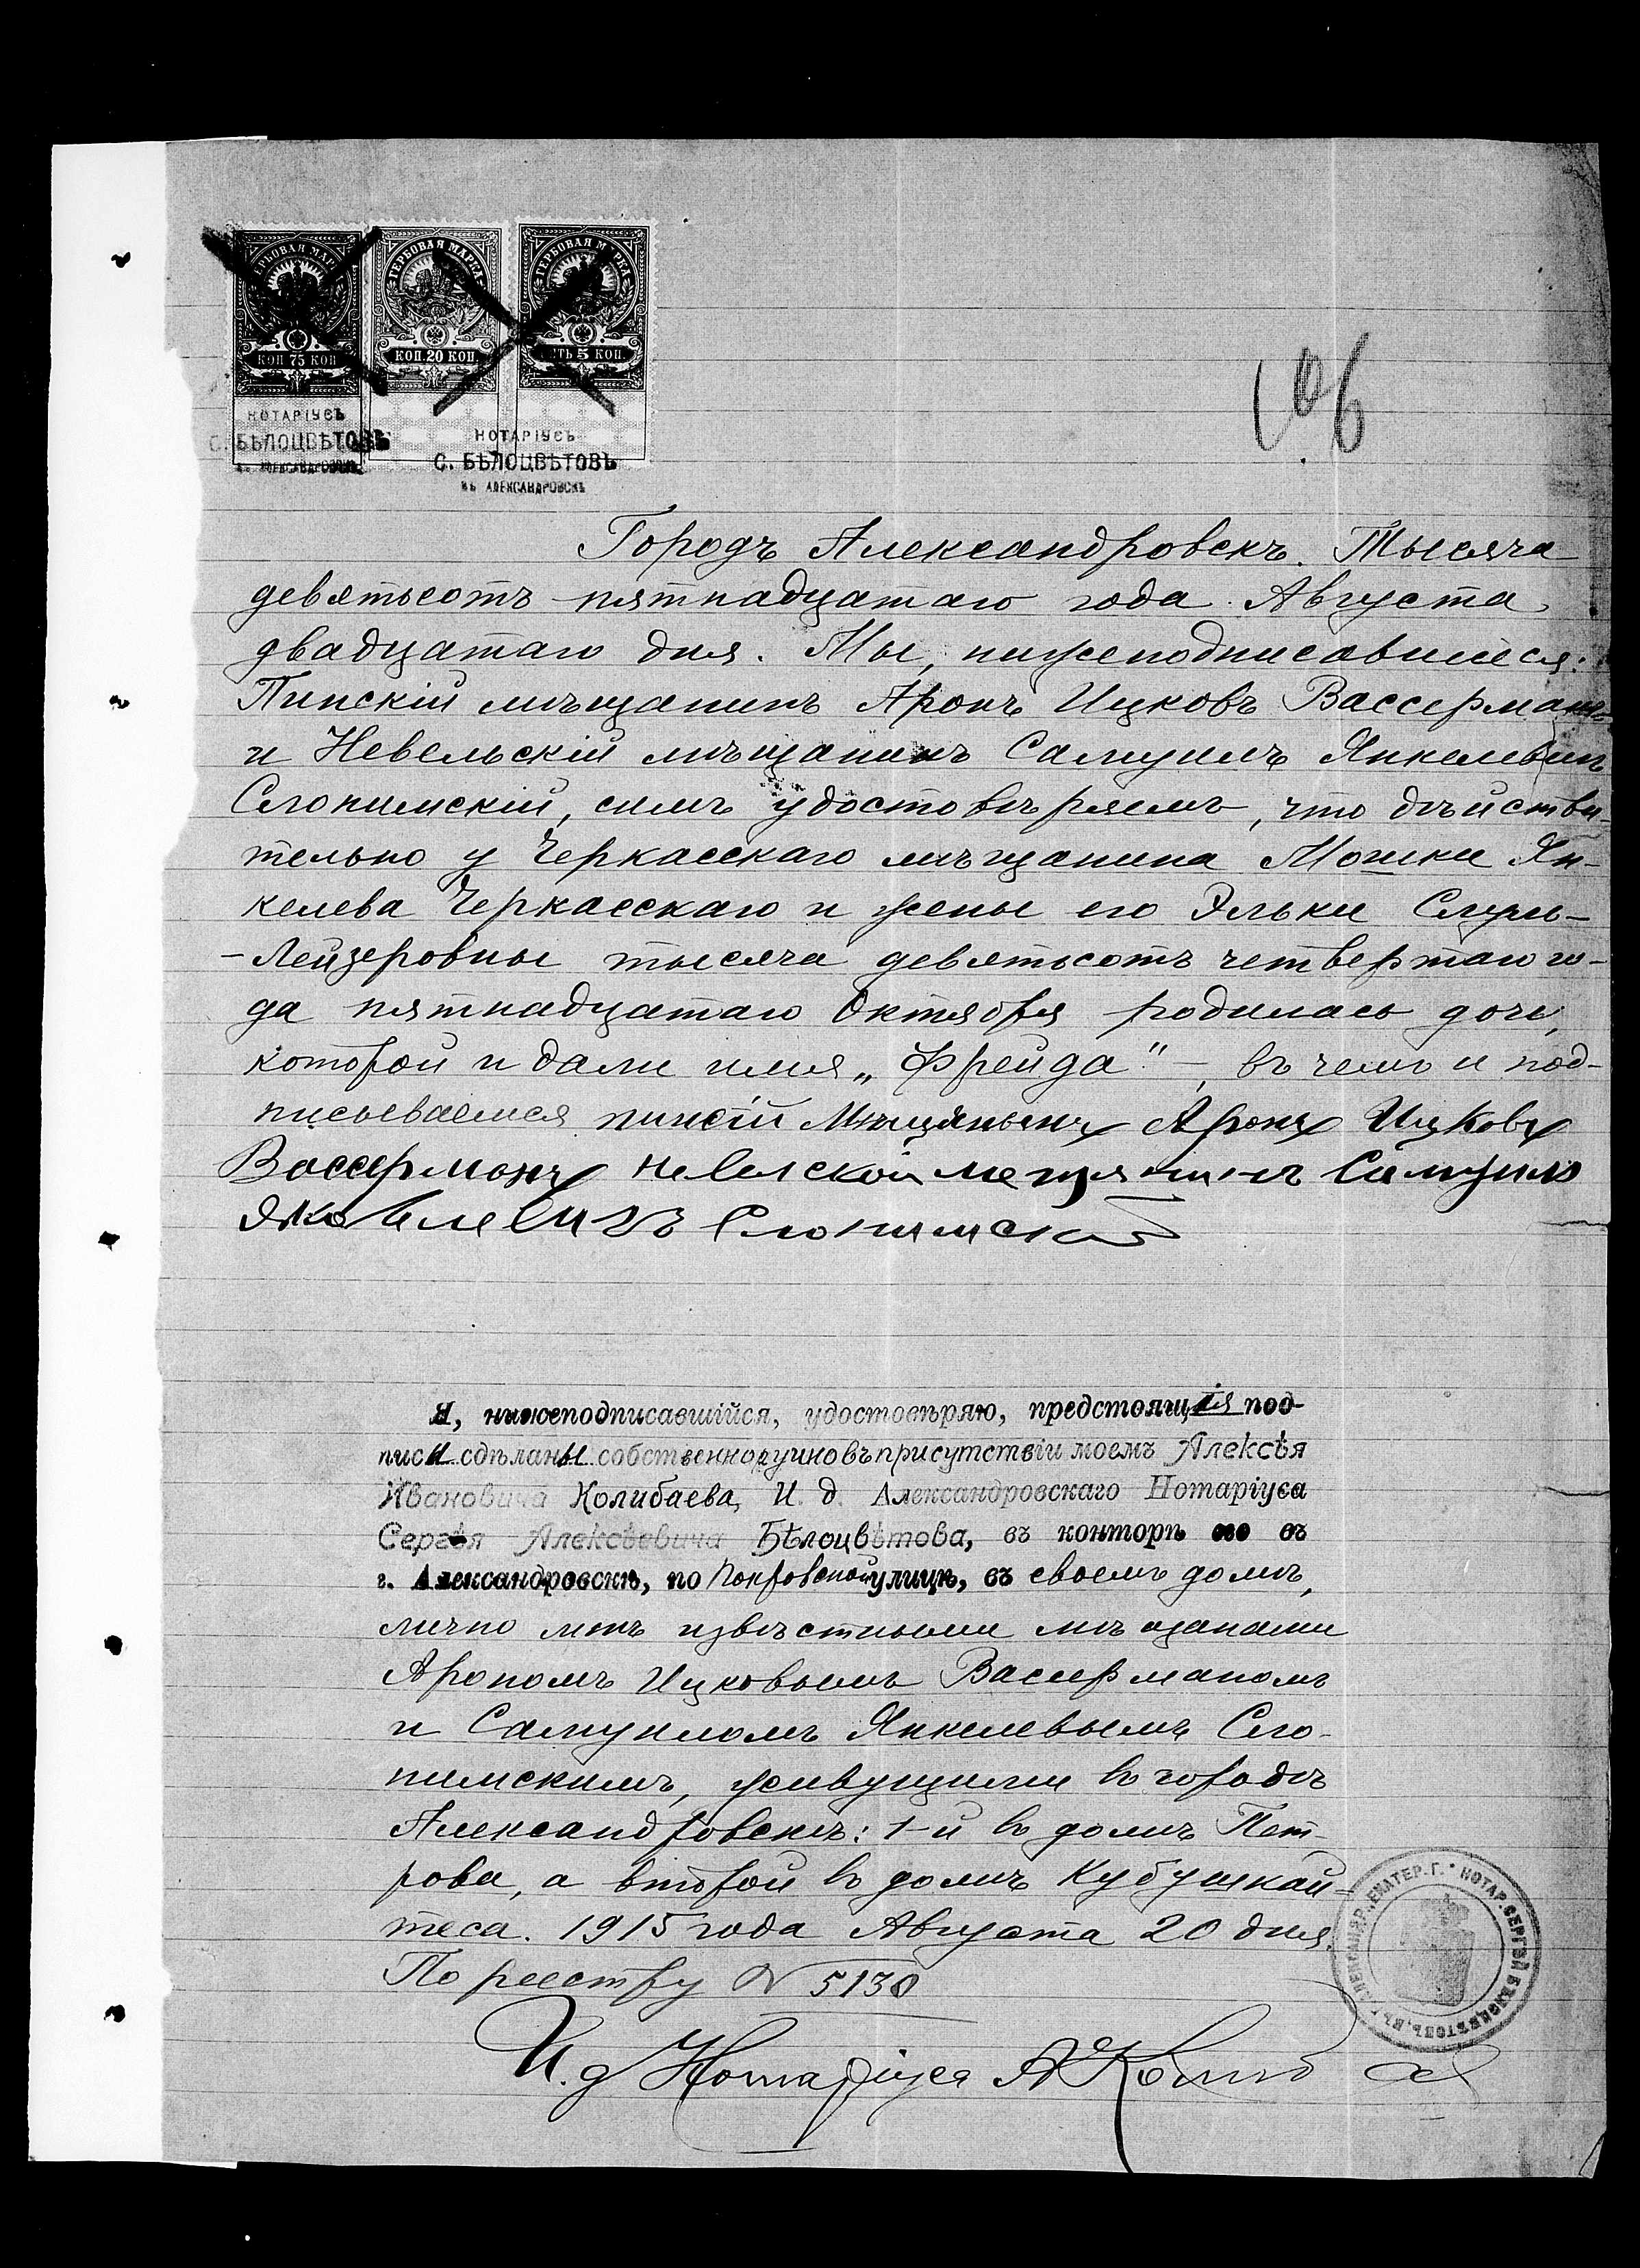 ГЕРБОВАЯ МАРКА
КОП 75 КОП
ГЕРБОВАЯ МАРКА
КОП. 20 КОП.
ГЕРБОВАЯ МАРКА
5 КОП.
НОТАРІУСЪ
С. БѢЛОЦВѢТОВЪ
ВЪ АЛЕКСАНДРОВСКѢ
НОТАРІУСЪ
С. БѢЛОЦВѢТОВЪ
ВЪ АЛЕКСАНДРОВСКѢ
106
Городъ Александровскъ. Тысяча
девятьсотъ пятнадцатаго года Августа
двадцатаго дня. Мы, нижеподписавшіеся:
Пинскій мѣщанинъ Аронъ Ицковъ Вассерманъ
и Невельскій мѣщанинъ Самуилъ Янкелевъ
Слонимскій, симъ удостовѣряемъ, что дѣйстви-
тельно у Черкасскаго мѣщанина Мошки Ян-
келева Черкасскаго и жены его Эльки Сруль-
-Лейзеровны тысяча девятьсотъ четвертаго го-
да пятнадцатаго Октября родилась дочь,
которой и дали имя „Фрейда" -, въ чемъ и под-
писываемся пинскій Мѣщаньинъ Аронъ Ицковъ
Вассерманъ невелской мещянинъ Самуилъ
Яковлевичъ Слонимский
Я, нижеподписавшійся, удостовѣряю, предстоящія под-
писи сдѣланы собственноручно въ присутствіи моемъ Алексѣя
Ивановича Колибаева, И. д. Александровскаго Нотаріуса
Сергѣя Алексѣевича Бѣлоцвѣтова, въ конторѣ его въ
г. Александровскѣ, по Покровской улицѣ, въ своемъ домѣ,
лично мнѣ извѣстными мѣщанами
Арономъ Ицковымъ Вассерманомъ
и Самуиломъ Янкелевымъ Сло-
нимскимъ, живущими въ городѣ
Александровскѣ: 1-й въ домѣ Пет-
рова, а второй въ домѣ Кубушкай-
теса. 1915 года Августа 20 дня.
По реестру № 5138
И. д Нотаріуса А Колибаев
НОТАР. СЕРГѢЙ БѢЛОЦВѢТОВЪ, ВЪ Г. АЛЕКСАНДР., ЕКАТЕР. Г.